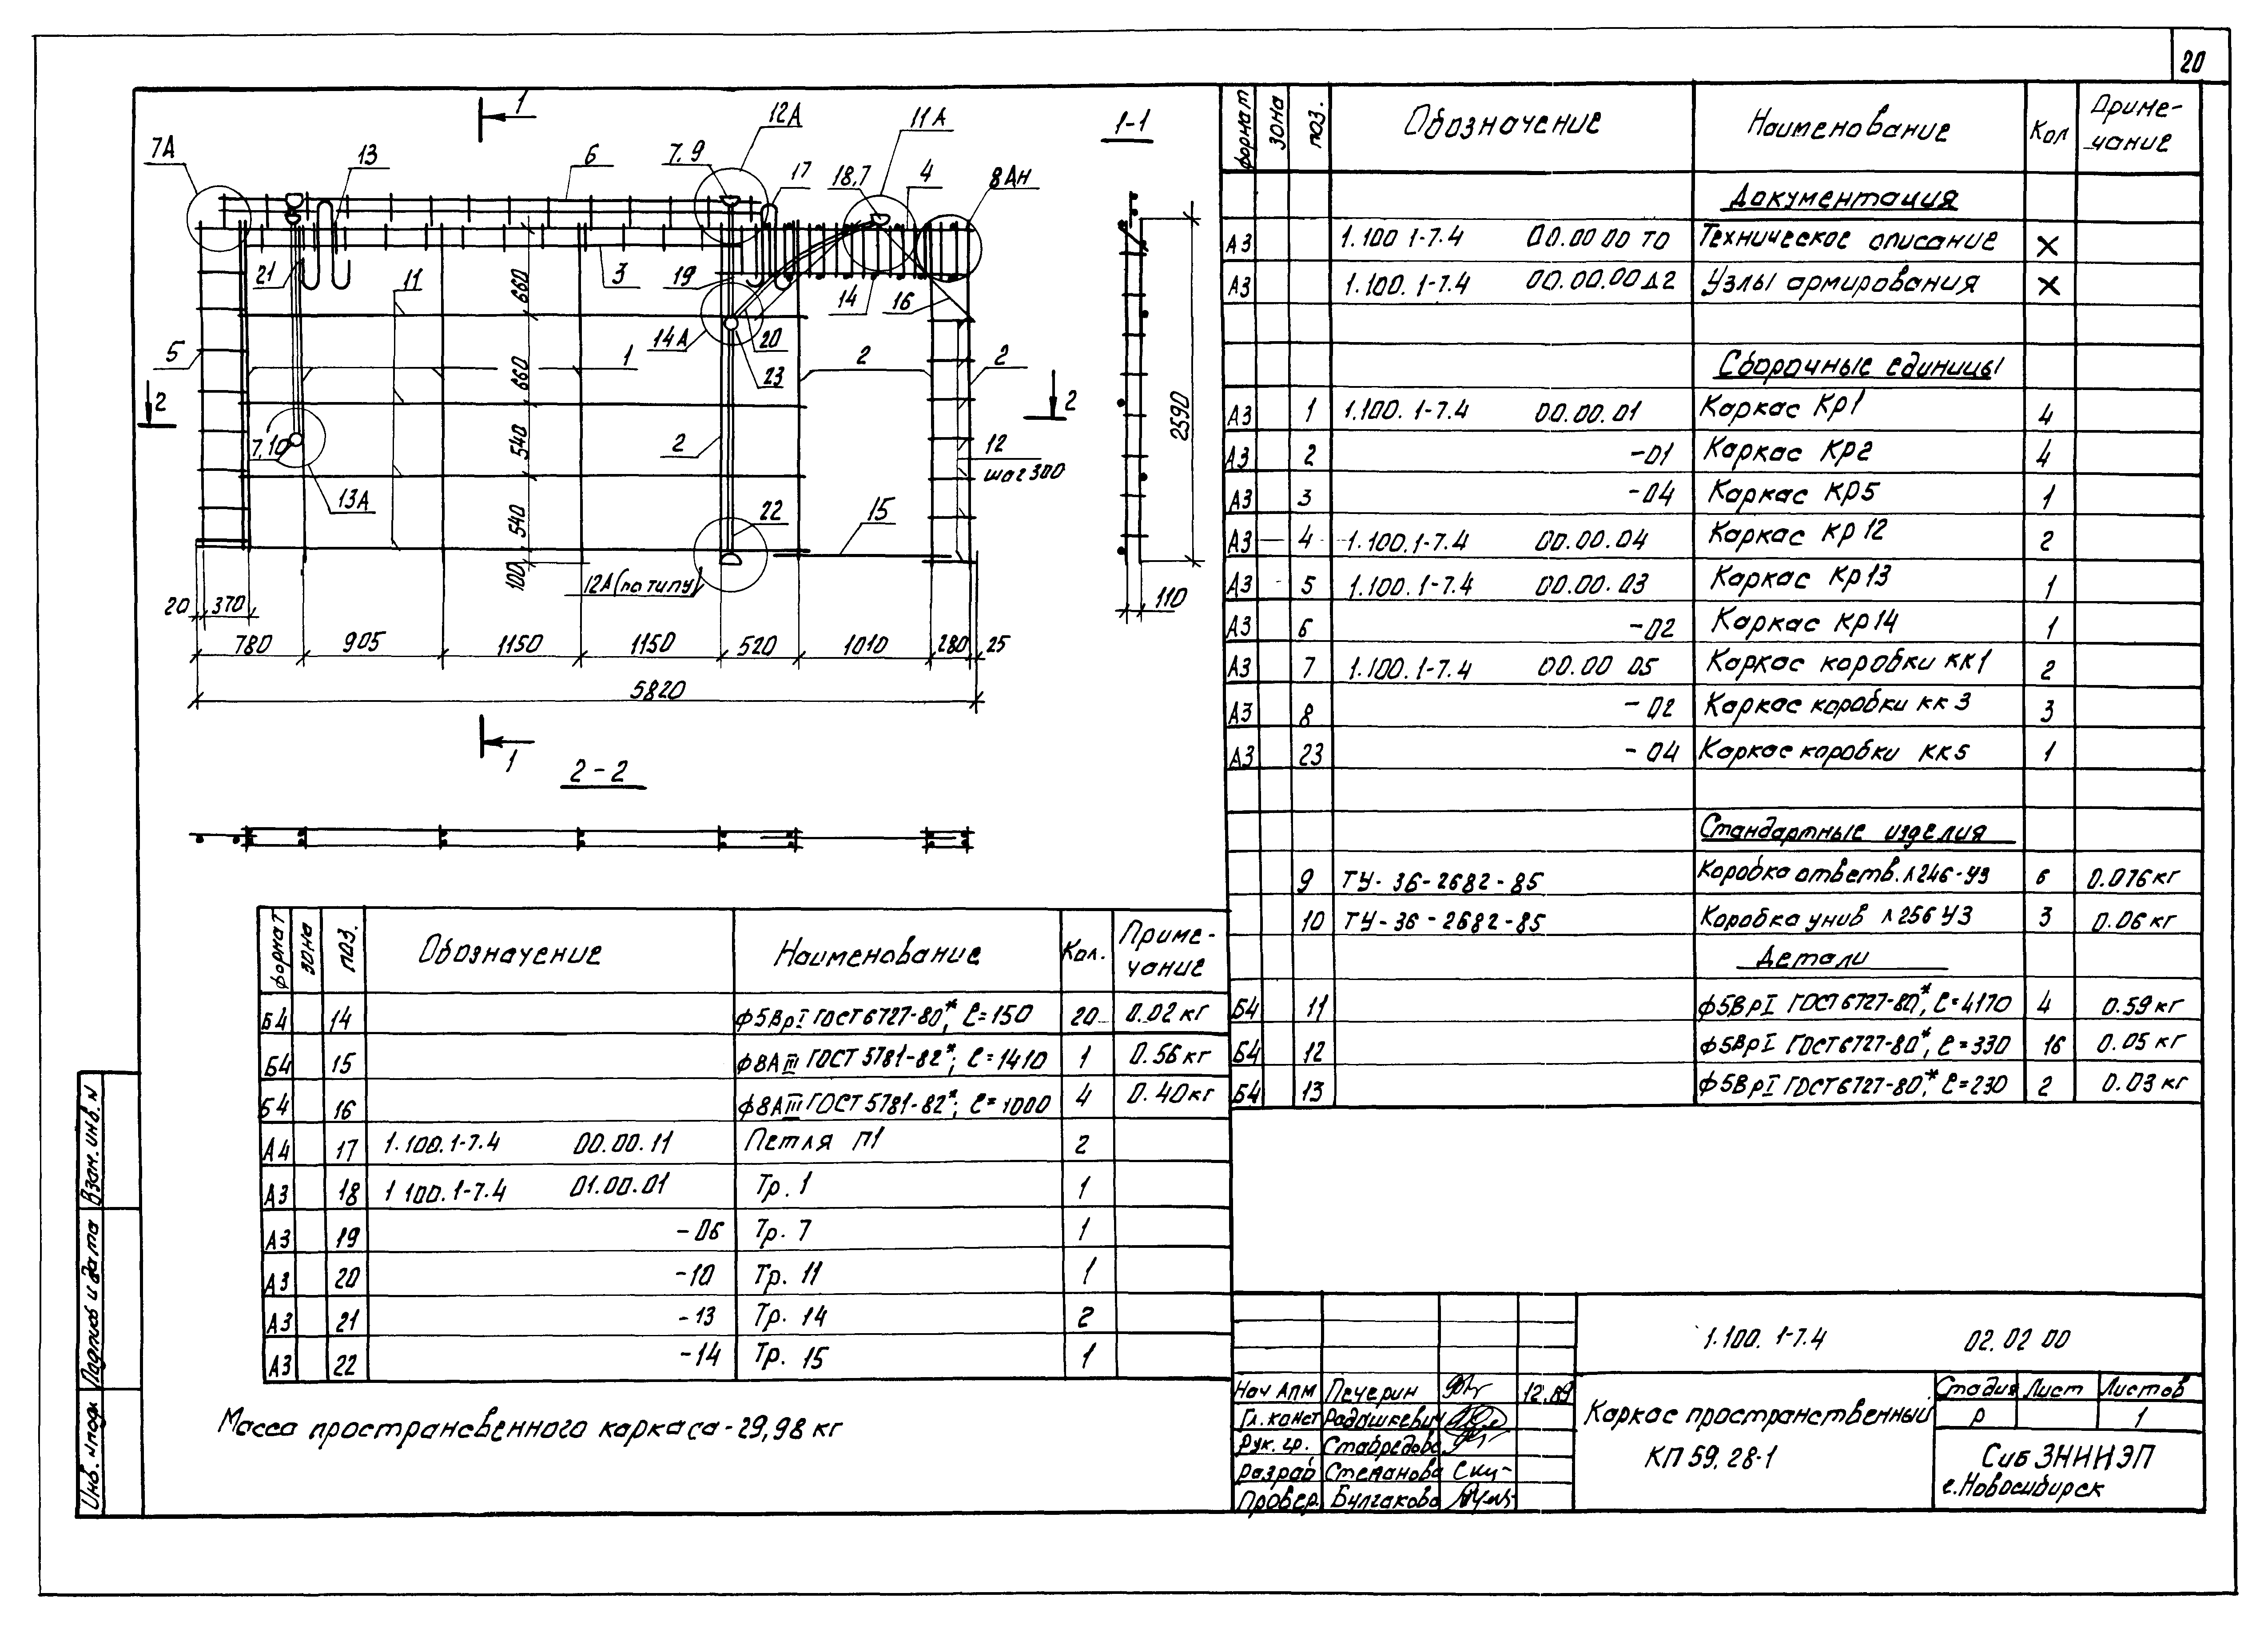 20
1
1-1
7А
13
6
7.9
12А
17
18,7
11А
4
8Ан
21
11
3
19
14
16
660
14А
20
5
1
23
2
2
660
2
2
2590
7,10
540
2
12
шаг 300
13А
22
15
540
100
12А (по типу)
110
20
370
780
905
1150
1150
520
1010
280
25
5820
1
2-2
формат
зона
поз.
Обозначение
Наименование
Кол
Приме-
чание
Документация
А3 1.100 1-7.4 00.00 00 ТО Техническое описание X
А3 1.100. 1-7.4 00.00.00 Д2 Узлы армирования X
Сборочные единицы
А3 1 1.100. 1-7.4 00.00.01 Каркас Кр1 4
А3 2 -01 Каркас Кр2 4
А3 3 -04 Каркас Кр5 1
А3 4 1.100.1-7.4 00.00.04 Каркас Кр 12 2
А3 5 1.100.1-7.4 00.00.03 Каркас Кр13 1
А3 6 -02 Каркас Кр14 1
А3 7 1.100.1-7.4 00.00 05 Каркас коробки кк1 2
А3 8 -02 Каркас коробки кк 3 3
А3 23 -04 Каркас коробки кк5 1
Стандартные изделия
9 ТУ-36-2682-85 Коробка ответв. Л246-У3 6 0.076 кг
10 ТУ-36-2682-85 Коробка унив Л256 У3 3 0.06 кг
Детали
Б4 11 ф5ВрI ГОСТ 6727-80*, ℓ=4170 4 0.59 кг
Б4 12 ф5ВрI ГОСТ 6727-80*, ℓ=330 16 0.05 кг
Б4 13 ф5ВрI ГОСТ 6727-80*, ℓ=230 2 0.03 кг
формат
зона
поз.
Обозначение
Наименование
Кол.
Приме-
чание
Б4 14 ф5ВрI ГОСТ 6727-80*, ℓ=150 20 0.02 кг
Б4 15 ф8АIII ГОСТ 5781-82*; ℓ=1410 1 0.56 кг
Б4 16 ф8АIII ГОСТ 5781-82*; ℓ=1000 4 0.40 кг
А4 17 1.100.1-7.4 00.00.11 Петля П1 2
А3 18 1 100.1-7.4 01.00.01 Тр. 1 1
А3 19 -06 Тр. 7 1
А3 20 -10 Тр. 11 1
А3 21 -13 Тр. 14 2
А3 22 -14 Тр. 15 1
Масса пространсвенного каркаса-29,98 кг
Взам. инв. N
Подпись и дата
Инв. N подл.
1.100. 1-7.4 02. 02 00
Нач АПМ Печерин 12.89
Гл. конст Радашкевич
Рук. гр. Ставредова
Разраб Степанова
Провер. Булгакова
Каркас пространственный
КП 59. 28-1
Стадия Лист Листов
Р 1
Сиб ЗНИИЭП
г. Новосибирск